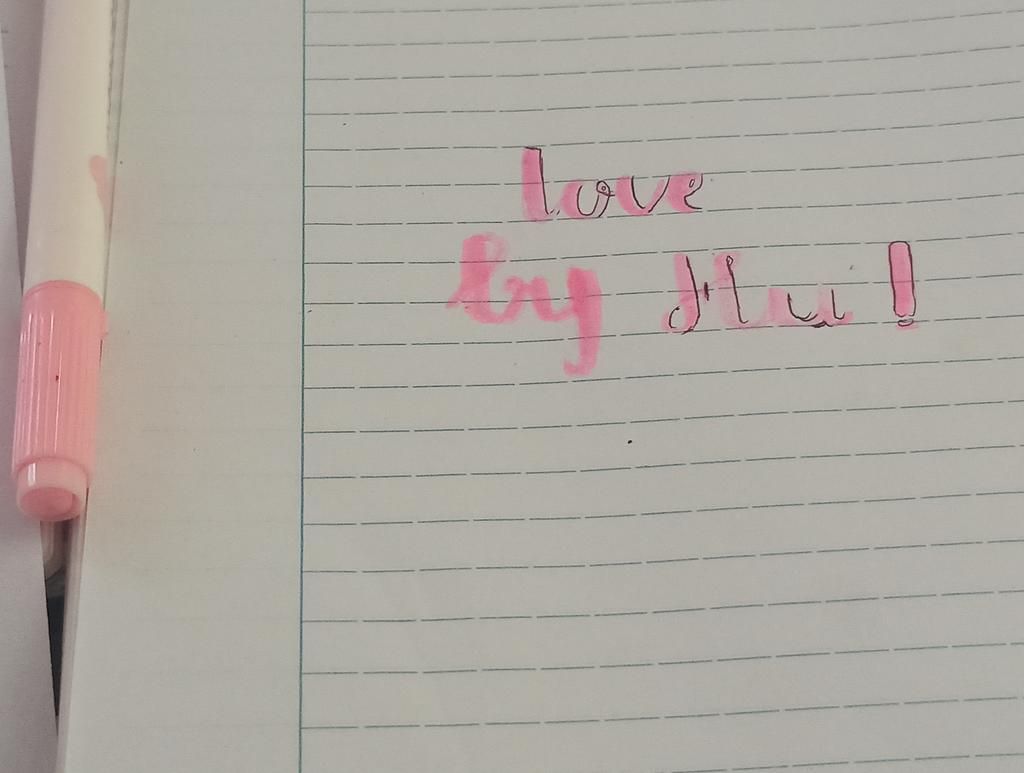 love
by Hu!